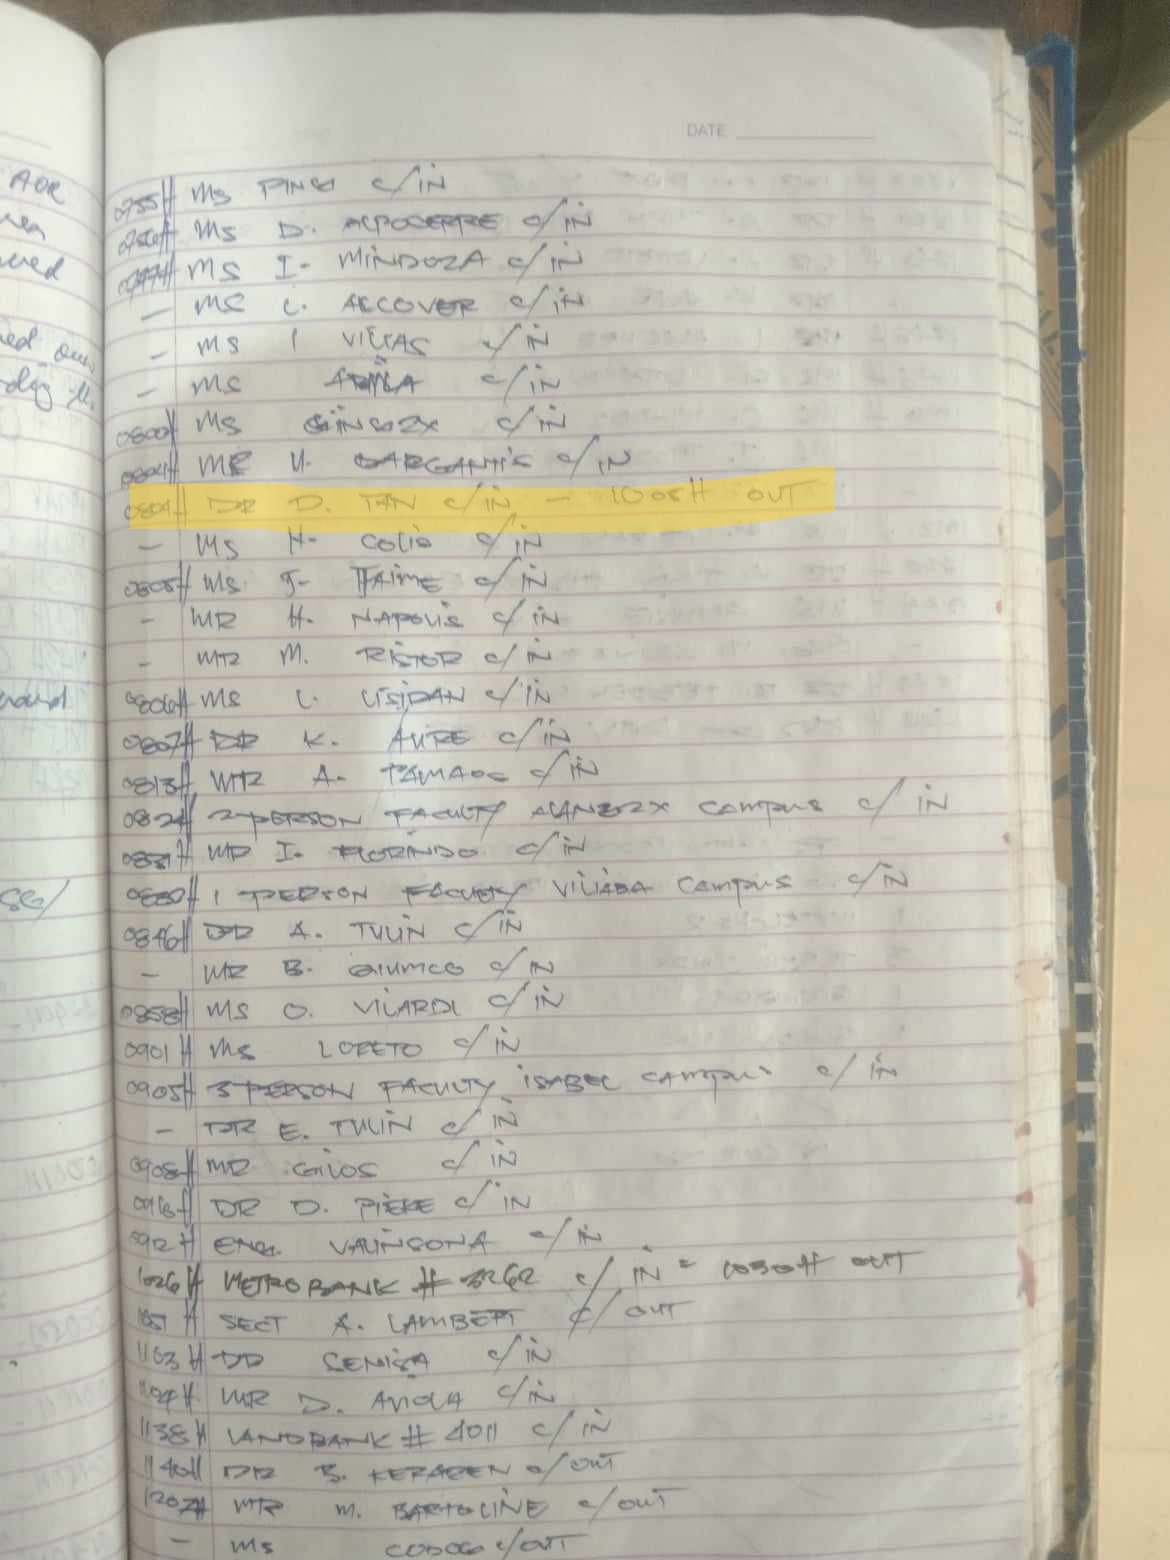 AOR
DATE
0755H MS PINGA c/IN
0756H MS D. ALPOCERRE c/IN
MS I. MINDOZA c/IN
— MS L. ALCOVER c/IN
— MS I VILLAS c/IN
— MS c/IN
0800H MS c/IN
0804H MR U. GARGANTIS c/IN
0804H DR D. TAN c/IN — 1005H OUT
— MS H. COLIS c/IN
0805H MS J. JAIME c/IN
— MR H. NAPOLIS c/IN
— MR M. RISTOR c/IN
0806H MS L. LISIDAN c/IN
0807H DR K. AURE c/IN
0813H MR A. TAMAOG c/IN
082 2 PERSON FACULTY CAMPUS c/IN
0831H MR I. FLORINDO c/IN
1 PERSON FACULTY VILIABA CAMPUS c/IN
0846H DR A. TULIN c/IN
— MR B. c/IN
0858H MS O. VILARDI c/IN
0901H MS LORETO c/IN
0905H 3 PERSON FACULTY ISABEL CAMPUS c/IN
— DR E. TULIN c/IN
0908H MR GILOS c/IN
DR D. c/IN
ENG. VALINSONA c/IN
1026H METROBANK # 3262 c/IN = 1030H OUT
SECT A. LAMBERT c/OUT
1103H CENIZA c/IN
MR D. AVIOLA c/IN
1138H LANDBANK # 4011 c/IN
1140H DR B. c/OUT
1207H MR M. BARTOLINE c/OUT
— MS CODOG c/OUT